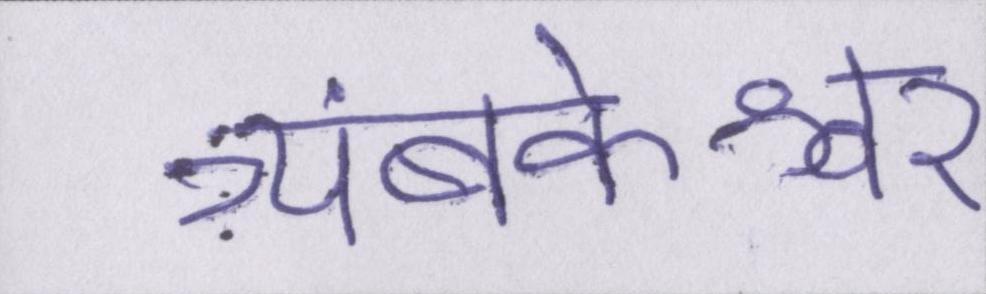 त्र्यंबकेश्वर